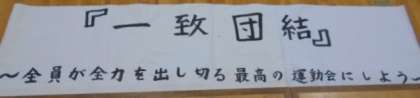 『一致団結』
～全員が全力を出し切る最高の運動会にしよう～